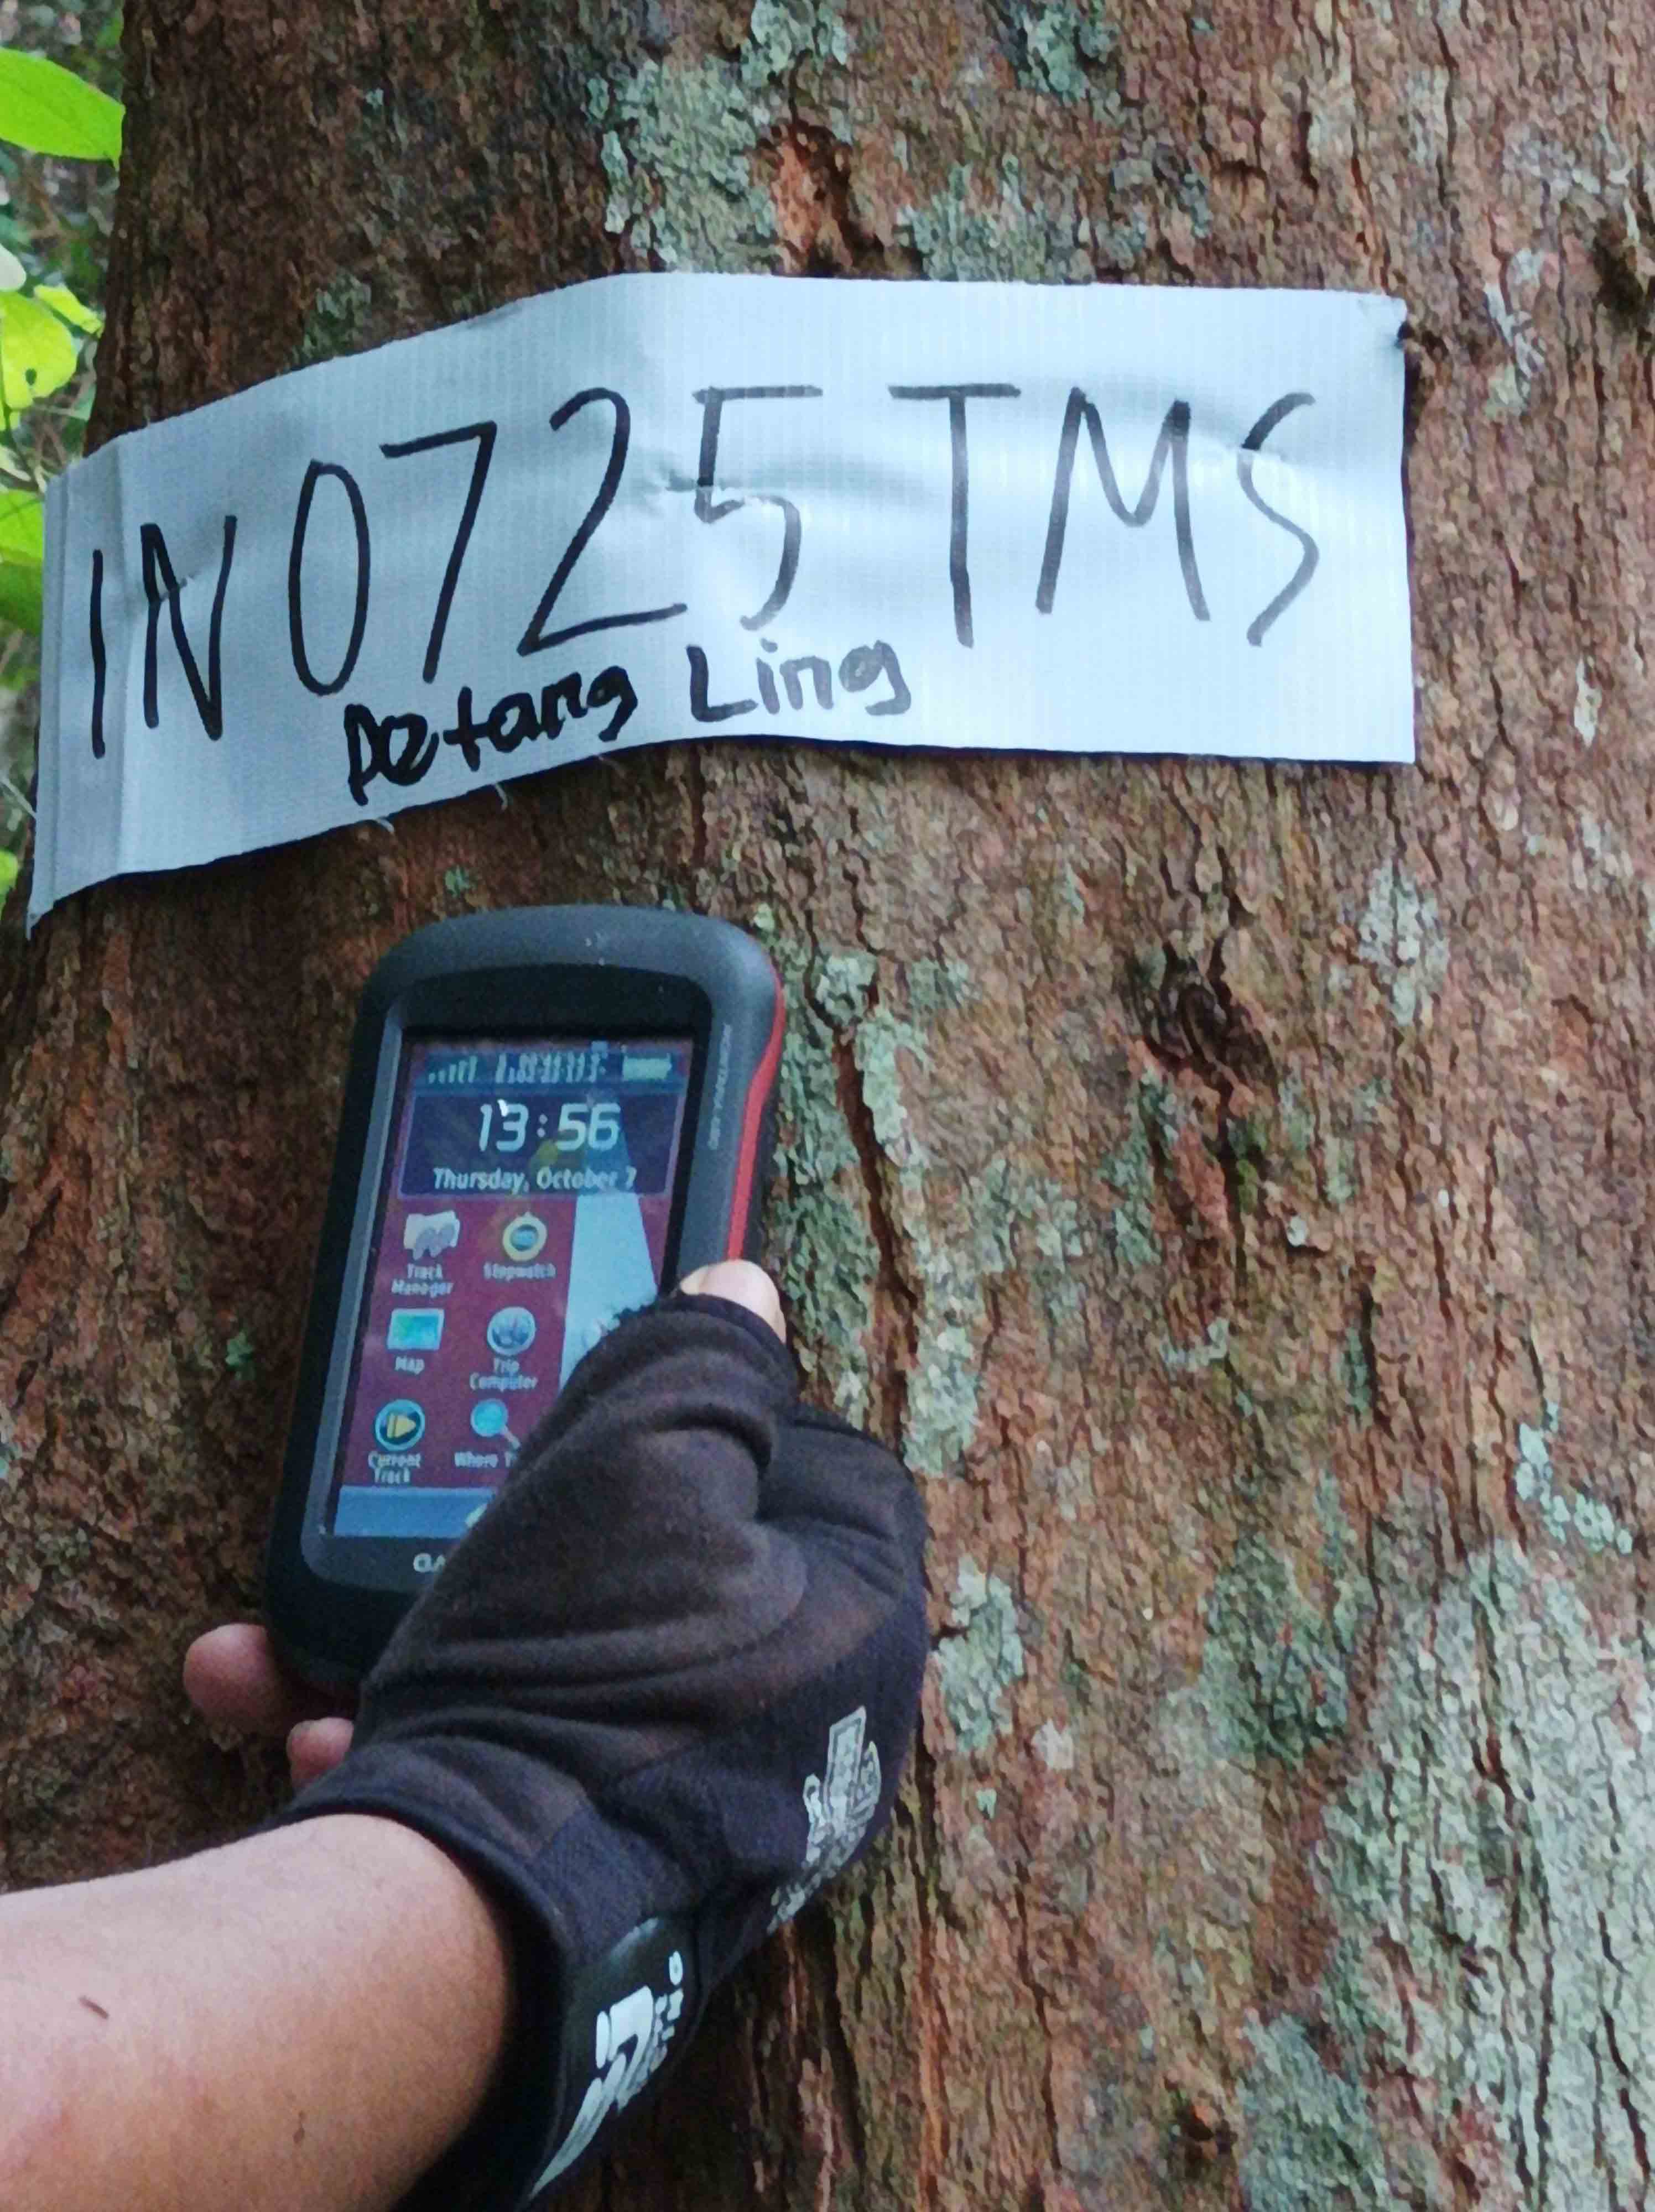 IN0725TMS
Petang Ling
13:56
Thursday, October 7
Track
Manager
Stopwatch
Map
Trip
Computer
Current
Track
Where